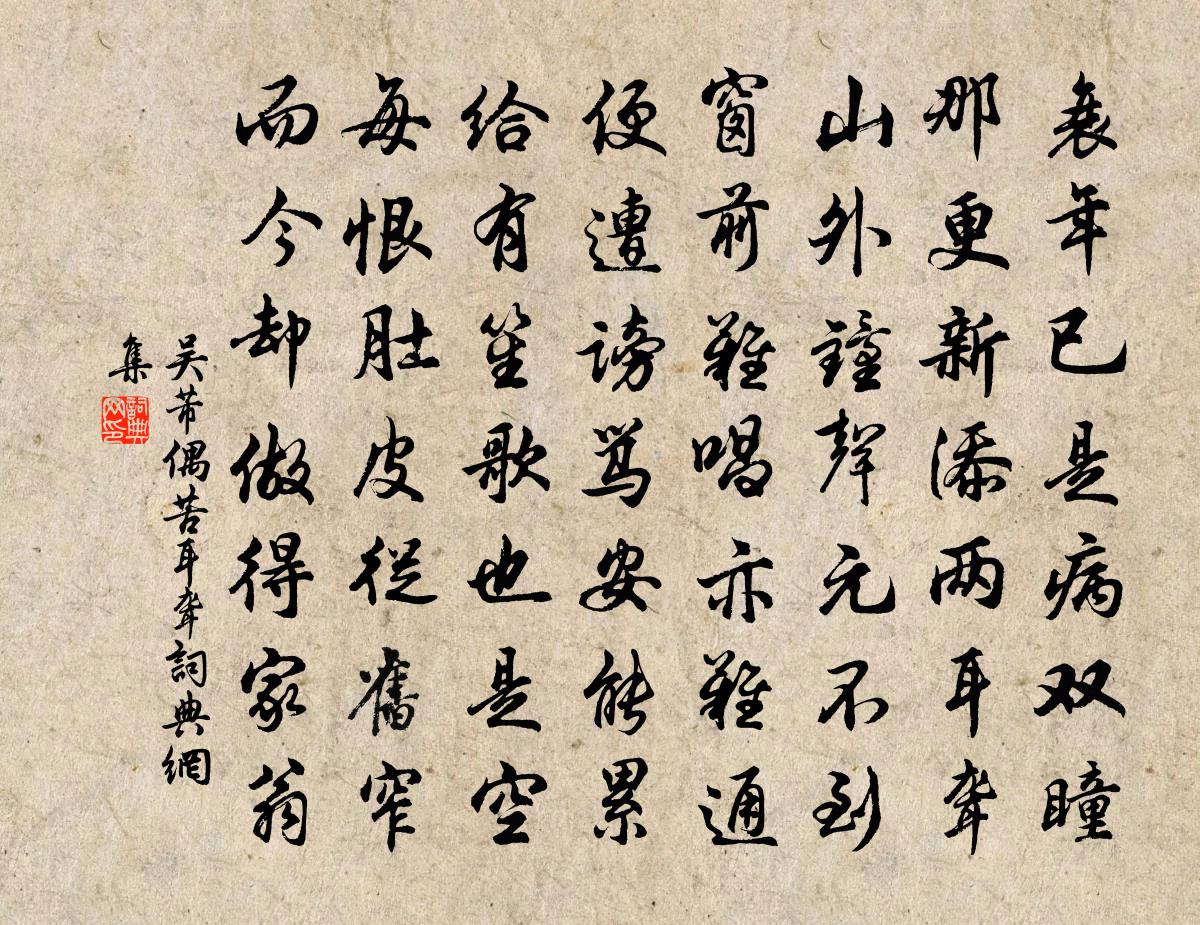 衰年已是病双瞳
那更新添两耳聋
山外鐘聲元不到
窗前雞唱亦難通
便遭謗骂安能累
给有笙歌也是空
每恨肚皮從舊窄
而今却做得家翁
吴芾偶苦耳聋詞典網
集
詞典网印